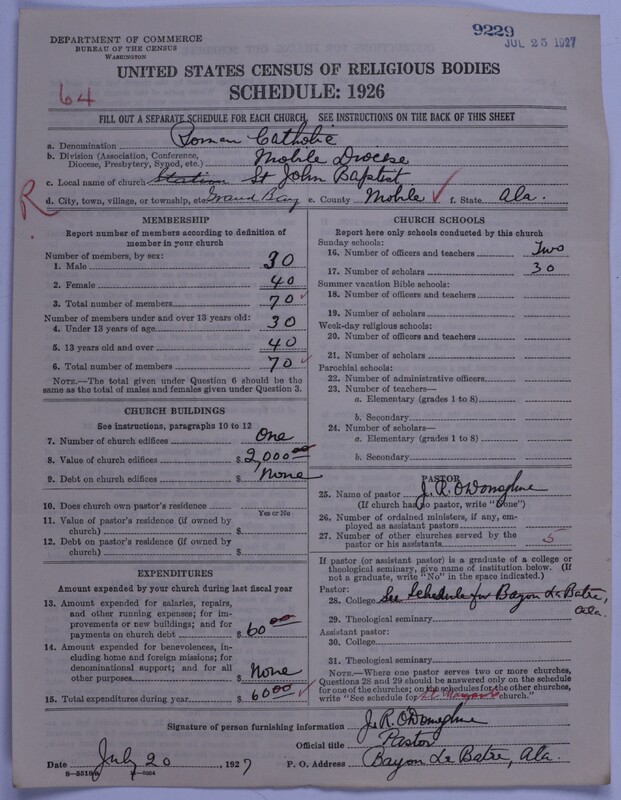 9229
JUL 25 1927
DEPARTMENT OF COMMERCE
BUREAU OF THE CENSUS
WASHINGTON
UNITED STATES CENSUS OF RELIGIOUS BODIES
SCHEDULE: 1926
64
FILL OUT A SEPARATE SCHEDULE FOR EACH CHURCH. SEE INSTRUCTIONS ON THE BACK OF THIS SHEET
a. Denomination Roman Catholic
b. Division (Association, Conference, Diocese, Presbytery, Synod, etc.) Mobile Diocese
c. Local name of church Station St John Baptist
R
d. City, town, village, or township, etc. Grand Bay e. County Mobile f. State Ala.
MEMBERSHIP
Report number of members according to definition of member in your church
Number of members, by sex:
1. Male 30
2. Female 40
3. Total number of members 70
Number of members under and over 13 years old:
4. Under 13 years of age 30
5. 13 years old and over 40
6. Total number of members 70
NOTE.—The total given under Question 6 should be the same as the total of males and females given under Question 3.
CHURCH BUILDINGS
See instructions, paragraphs 10 to 12
7. Number of church edifices One
8. Value of church edifices $ 2,000 00
9. Debt on church edifices $ None
10. Does church own pastor's residence
Yes or No
11. Value of pastor's residence (if owned by church) $
12. Debt on pastor's residence (if owned by church) $
EXPENDITURES
Amount expended by your church during last fiscal year
13. Amount expended for salaries, repairs, and other running expenses; for improvements or new buildings; and for payments on church debt $ 60 00
14. Amount expended for benevolences, including home and foreign missions; for denominational support; and for all other purposes $ None
15. Total expenditures during year $ 60 00
CHURCH SCHOOLS
Report here only schools conducted by this church
Sunday schools:
16. Number of officers and teachers Two
17. Number of scholars 30
Summer vacation Bible schools:
18. Number of officers and teachers
19. Number of scholars
Week-day religious schools:
20. Number of officers and teachers
21. Number of scholars
Parochial schools:
22. Number of administrative officers
23. Number of teachers—
a. Elementary (grades 1 to 8)
b. Secondary
24. Number of scholars—
a. Elementary (grades 1 to 8)
b. Secondary
PASTOR
25. Name of pastor J. R. O'Donoghue
(If church has no pastor, write "None")
26. Number of ordained ministers, if any, employed as assistant pastors
27. Number of other churches served by the pastor or his assistants 5
If pastor (or assistant pastor) is a graduate of a college or theological seminary, give name of institution below. (If not a graduate, write "No" in the space indicated.)
Pastor:
28. College See Schedule for Bayou La Batre, Ala.
29. Theological seminary
Assistant pastor:
30. College
31. Theological seminary
NOTE.—Where one pastor serves two or more churches, Questions 28 and 29 should be answered only on the schedule for one of the churches; on the schedules for the other churches, write "See schedule for St. Margaret's church."
Signature of person furnishing information J. R. O'Donoghue
Official title Pastor
Date July 20, 1927 P. O. Address Bayou La Batre, Ala.